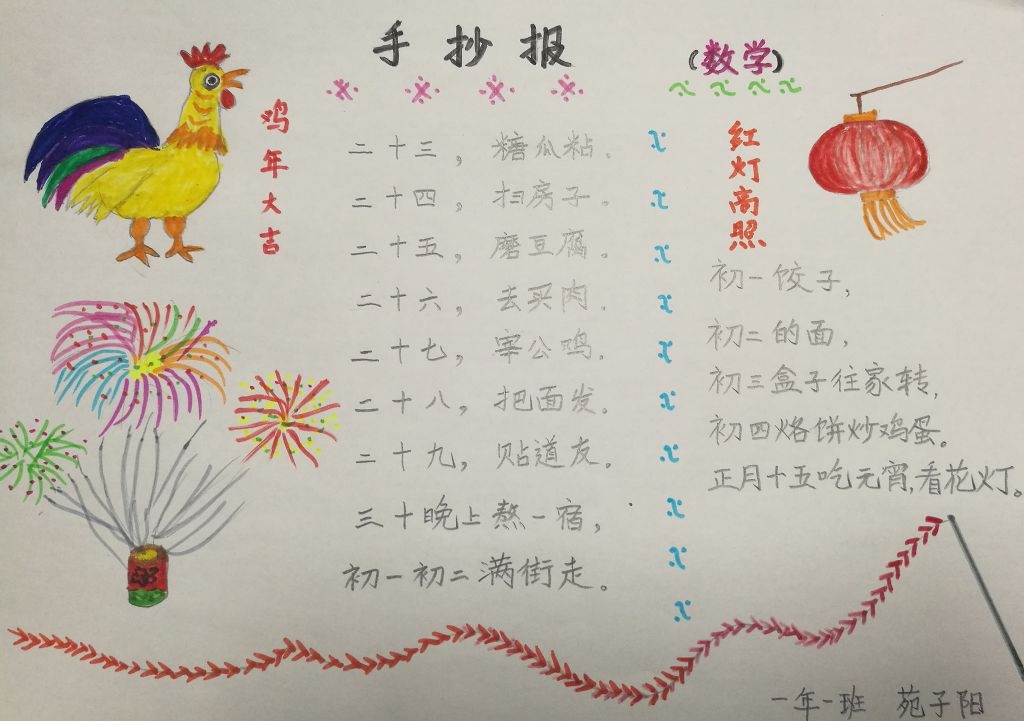 手抄报（数学）
鸡年大吉
二十三，糖瓜粘。
二十四，扫房子。
二十五，磨豆腐。
二十六，去买肉。
二十七，宰公鸡。
二十八，把面发。
二十九，贴道友。
三十晚上熬一宿，
初一初二满街走。
红灯高照
初一饺子，
初二的面，
初三盒子往家转，
初四烙饼炒鸡蛋。
正月十五吃元宵，看花灯。
一年一班 苑子阳